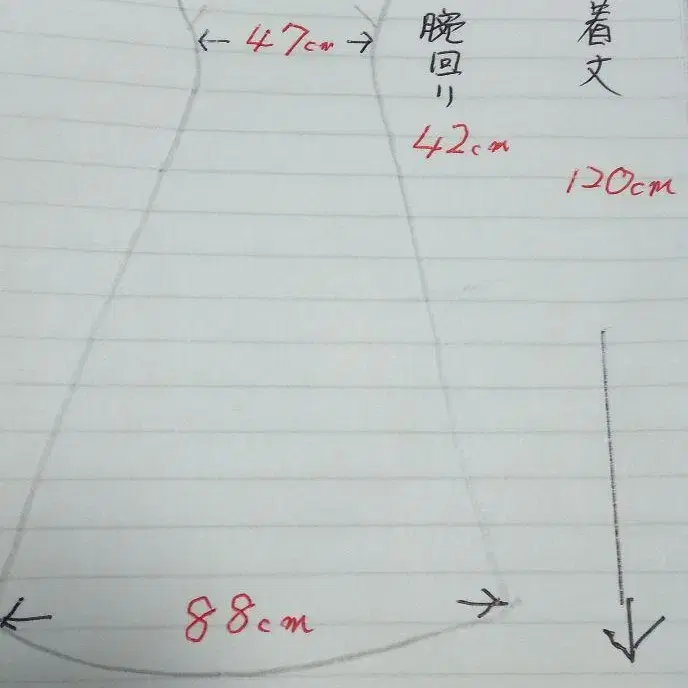 47cm
腕回り
42cm
着丈
120cm
88cm